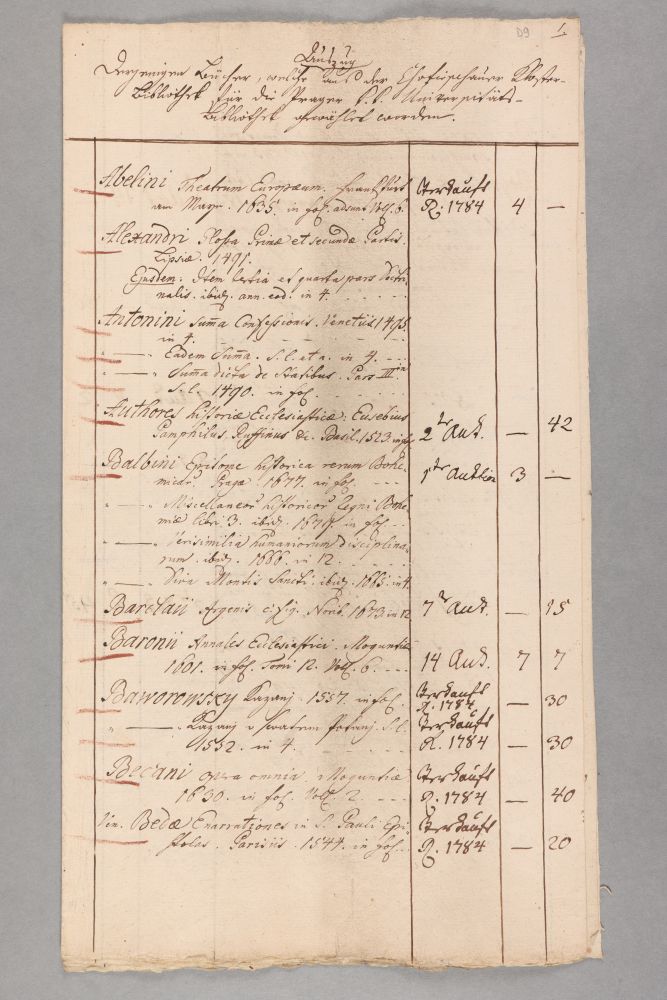 D9 1.
Auszug
Derjenigen Bücher, welche aus der Chotieschauer Kloster-
Bibliothek für die Prager k. k. Universitäts-
Bibliothek gewählet worden.
Abelini Theatrum Europæum. Franckfurt Verkauft
am Mayn. 1635. in fol. adsunt Voll. 6. R. 1784 4 —
Alexandri Glossa Primæ et secundæ Partis.
Lipsiæ. 1491.
Ejusdem. Item tertia et quarta pars Doctri-
nalis. ibid. ann. eod. in 4.
Antonini Summa Confessionis. Venetiis 1495.
in 4.
" — " Eadem Summa. S. l. et a. in 4.
" — " Summa dicta de Statibus. Pars III.
S. l. 1490. in fol.
Authores historiæ Ecclesiasticæ: Eusebius
Pamphilus, Ruffinus &c. Basil. 1523. in fol. 2te Auk. — 42
Balbini Epitome historica rerum Bohe- 1ste Auktion 3 —
micar. Pragæ. 1677. in fol.
" — " Miscellaneor. historicor. Regni Bohe-
miæ libri 3. ibid. in fol.
" — " Verisimilia humaniorum disciplina-
rum. ibid. 1666. in 12.
" — " Diva Montis Sancti. ibid. 1665. in 4.
Barclaii Argenis c. fig. Norib. 1673 in 12 7te Auk. — 15
Baronii Annales Ecclesiastici. Moguntiæ
1601. in fol. Tomi 12. Voll. 6. 14 Auk. 7 7
Baworowsky Kazanj. 1557. in fol. Verkauft R. 1784 — 30
" — " Kazanj o swatem Pokanj. S. l. Verkauft
1552. in 4. R. 1784 — 30
Becani opera omnia. Moguntiæ Verkauft
1630. in fol. Voll. 2. R. 1784 — 40
Ven. Bedæ Enarrationes in S. Pauli Epi- Verkauft
stolas. Parisiis. 1544. in fol. R. 1784 — 20